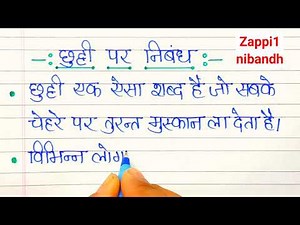 Zappi1
nibandh
छुट्टी पर निबंध
छुट्टी एक ऐसा शब्द है जो सबके
चेहरे पर तुरन्त मुस्कान ला देता है।
विभिन्न लोग